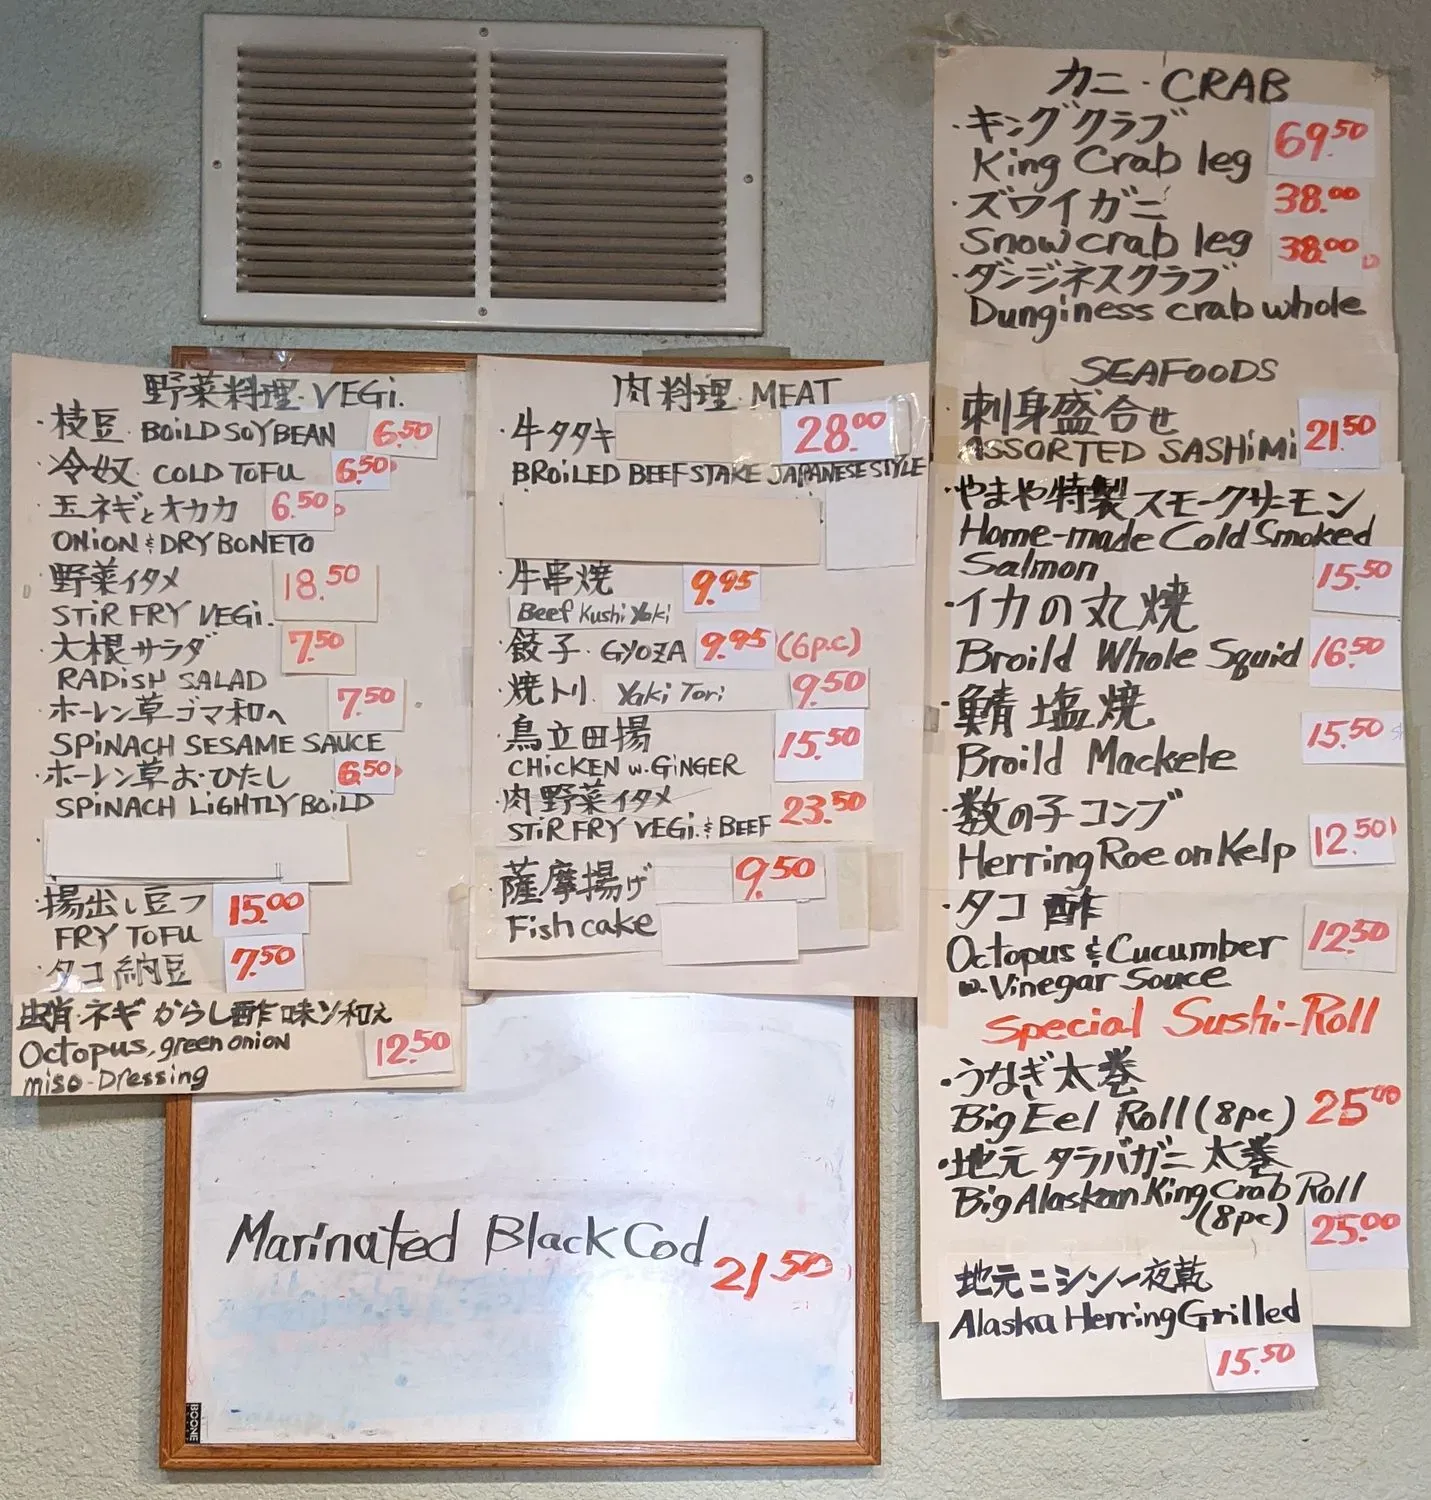 野菜料理・VEGi.
・枝豆. BOiLD SOYBEAN 6.50
・冷奴. COLD TOFU 6.50
・玉ネギとオカカ 6.50
ONiON & DRY BONETO
・野菜イタメ 18.50
STiR FRY VEGi.
・大根サラダ 7.50
RADiSH SALAD
・ホーレン草ゴマ和へ 7.50
SPiNACH SESAME SAUCE
・ホーレン草おひたし 6.50
SPiNACH LiGHTLY BOiLD
・揚出し豆フ 15.00
FRY TOFU
・タコ納豆 7.50
蛸・ネギからし酢味ソ和え
Octopus, green onion 12.50
miso-Dressing
肉料理・MEAT
・牛タタキ 28.00
BROiLED BEEF STAKE JAPANESE STYLE
・牛串焼 9.95
Beef Kushi Yaki
・餃子. GYOZA 9.95 (6p.c)
・焼トリ. Yaki Tori 9.50
・鳥立田揚 15.50
CHiCKEN w. GiNGER
・肉野菜イタメ 23.50
STiR FRY VEGi. & BEEF
・薩摩揚げ 9.50
Fish cake
Marinated Black Cod 21.50
BOONE
カニ・CRAB
・キングクラブ 69.50
King Crab leg
・ズワイガニ 38.00
Snow crab leg 38.00
・ダンジネスクラブ
Dunginess crab whole
SEAFOODS
・刺身盛合せ
ASSORTED SASHiMi 21.50
・やまや特製スモークサーモン
Home-made Cold Smoked
Salmon 15.50
・イカの丸焼
Broild Whole Squid 16.50
・鯖塩焼 15.50
Broild Mackele
・数の子コンブ 12.50
Herring Roe on Kelp
・タコ酢
Octopus & Cucumber 12.50
w. Vinegar Souce
Special Sushi-Roll
・うなぎ太巻
Big Eel Roll (8pc) 25.00
・地元タラバガニ太巻
Big Alaskan King crab Roll
(8pc) 25.00
地元ニシン一夜乾
Alaska Herring Grilled
15.50